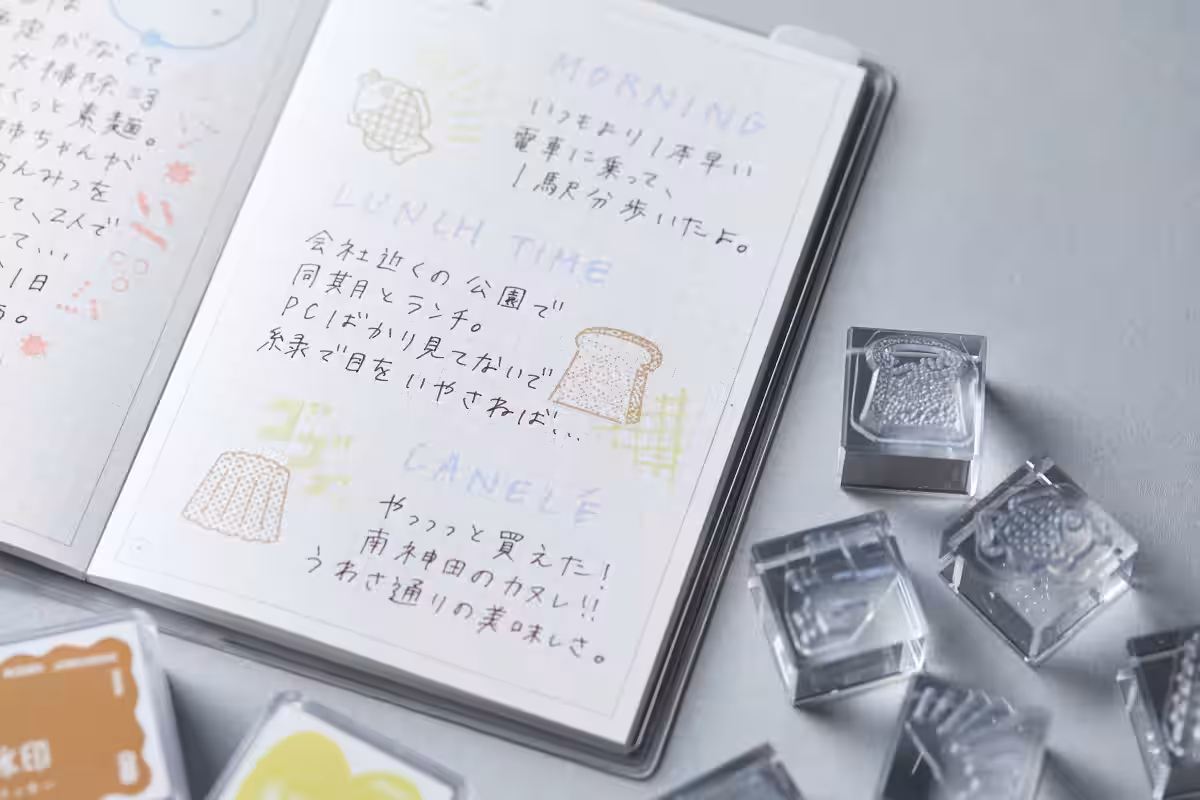 がなくて
大掃除
っと素麺。
ちゃんが
あんみつを
て、2人で
して...
1日
MORNING
いつもより1本早い
電車に乗って、
1駅分歩いたよ。
LUNCH TIME
会社近くの公園で
同期とランチ。
PCばかり見てないで
緑で目をいやさねば...
CANELÉ
やっっっと買えた!
南神田のカヌレ!!
うわさ通りの美味しさ。
水印